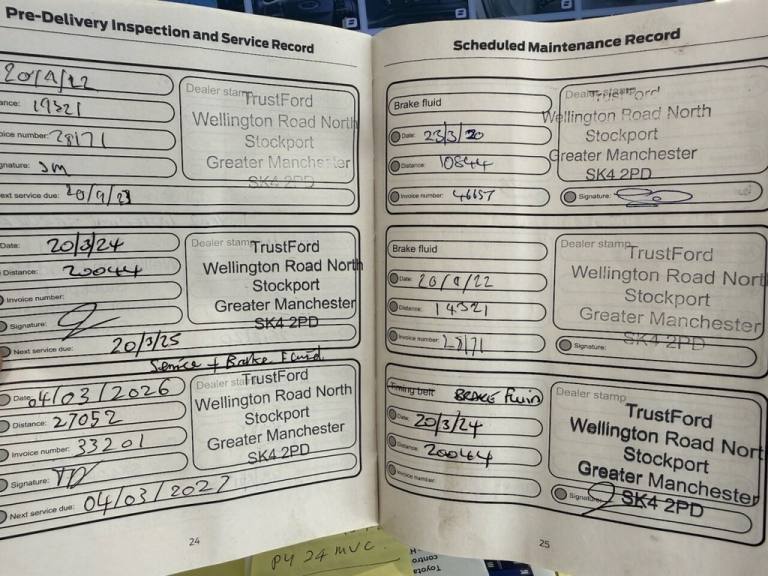 Pre-Delivery Inspection and Service Record
20/9/22
19321
28171
Next service due: 20/9/23
Dealer stamp
TrustFord
Wellington Road North
Stockport
Greater Manchester
SK4 2PD
Date: 20/3/24
Distance: 20044
Invoice number:
Signature:
Next service due: 20/3/25
Dealer stamp
TrustFord
Wellington Road North
Stockport
Greater Manchester
SK4 2PD
Service + Brake Fluid
Date: 04/03/2026
Distance: 27052
Invoice number: 33201
Signature:
Next service due: 04/03/2027
Dealer stamp
TrustFord
Wellington Road North
Stockport
Greater Manchester
SK4 2PD
24
Scheduled Maintenance Record
Brake fluid
Date: 23/3/20
Distance: 10844
Invoice number: 46657
Dealer stamp
TrustFord
Wellington Road North
Stockport
Greater Manchester
SK4 2PD
Signature:
Brake fluid
Date: 20/9/22
Distance: 14321
Invoice number: 28171
Dealer stamp
TrustFord
Wellington Road North
Stockport
Greater Manchester
SK4 2PD
Signature:
Timing belt BRAKE fluid
Date: 20/3/24
Distance: 20044
Invoice number:
Dealer stamp
TrustFord
Wellington Road North
Stockport
Greater Manchester
SK4 2PD
Signature:
25
PY 24 MVC
Toyota